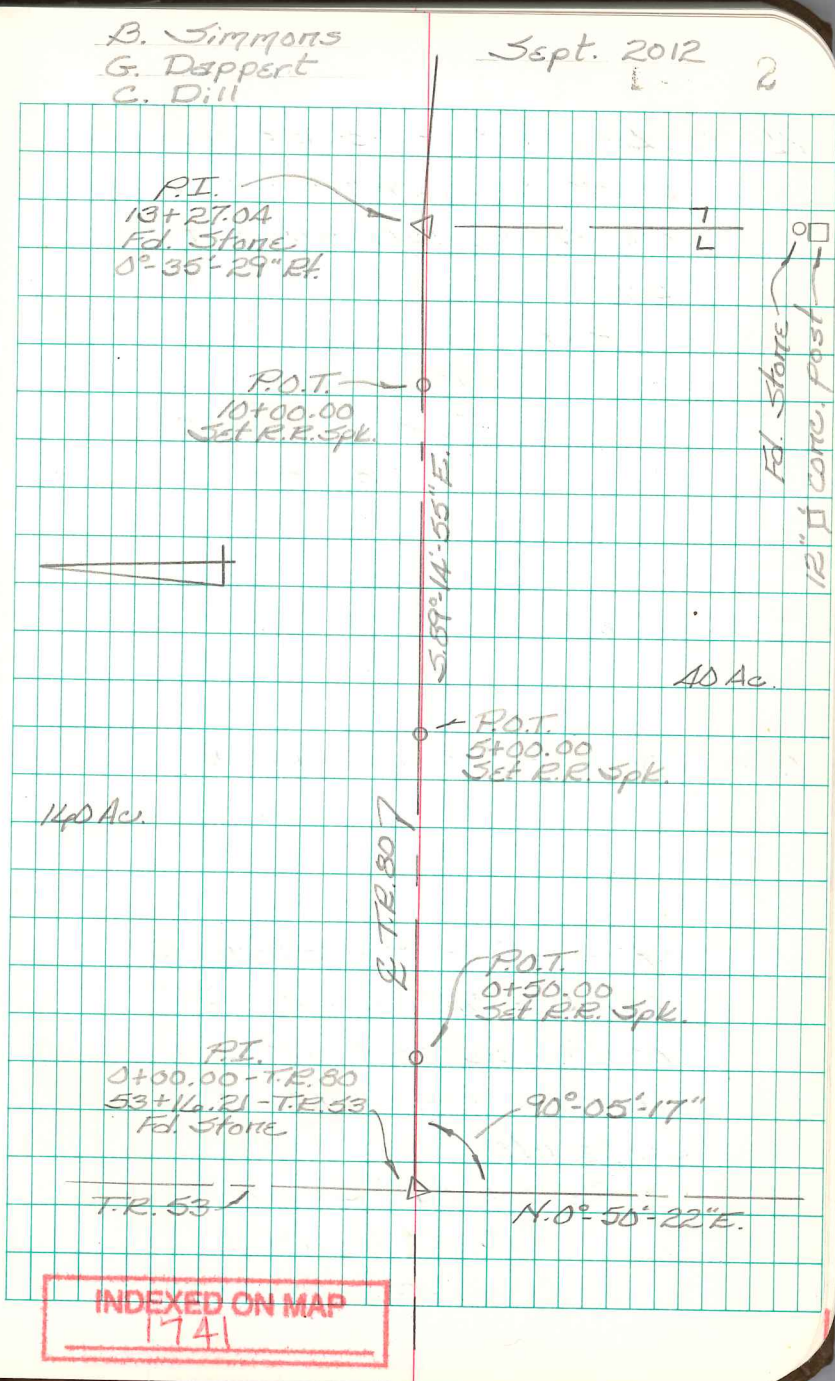 B. Simmons
G. Dappert
C. Dill
Sept. 2012
1 2
P.I.
13+27.04
Fd. Stone
0°-35'-29" Rt.
Fd. Stone
12" □ conc. post
P.O.T.
10+00.00
Set R.R. Spk.
S.89°-14'-55"E.
40 Ac.
P.O.T.
5+00.00
Set R.R. Spk.
140 Ac.
℄ T.R. 80
P.O.T.
0+50.00
Set R.R. Spk.
P.I.
0+00.00-T.R. 80
53+16.21-T.R. 53
Fd. Stone
90°-05'-17"
T.R. 53
N.0°-50'-22"E.
INDEXED ON MAP
1741